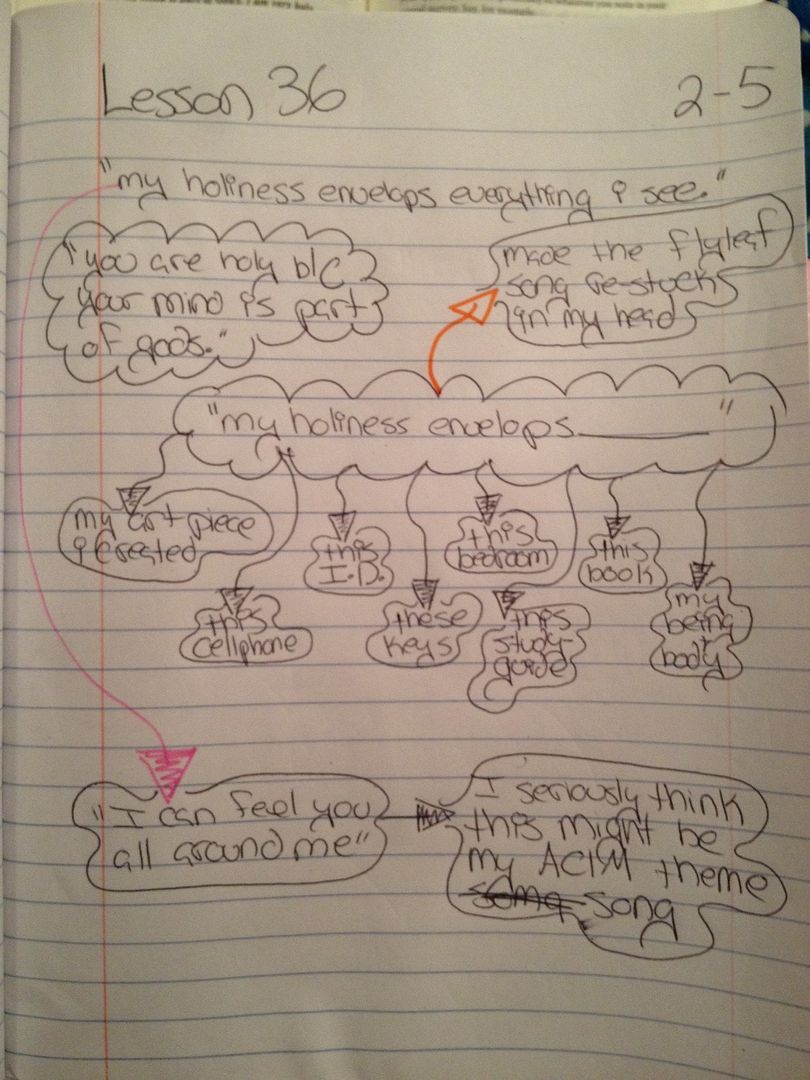 Lesson 36
2-5
"my holiness envelops everything i see."
"you are holy b/c
your mind is part
of gods."
made the flyleaf
song re-stucks
in my head
"my holiness envelops______"
my art piece
i created
this
I.D.
this
bedroom
this
book
this
cellphone
these
keys
this
study-
guide
my
being
+
body
"I can feel you
all around me"
I seriously think
this might be
my ACIM theme
song song